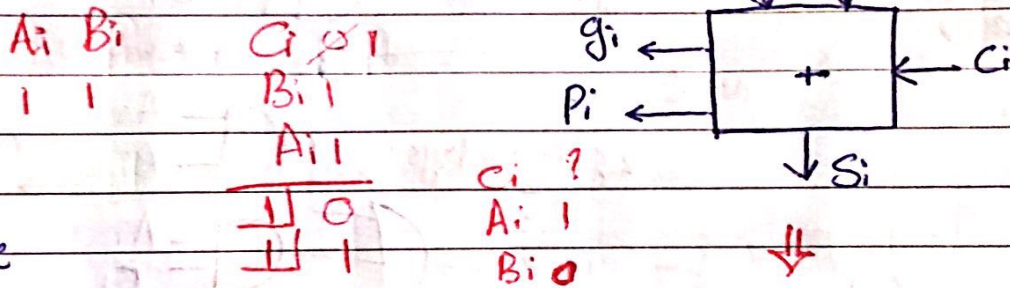 Ai Bi
1 1
Ci 0 1
Bi 1
Ai 1
1 0
1 1
Ci ?
Ai 1
Bi 0
gi
Pi
+
Ci
Si